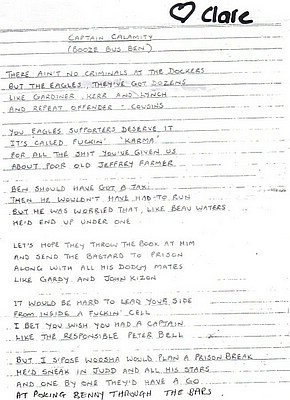 ♡ Clare
CAPTAIN CALAMITY
(BOOZE BUS BEN)
THERE AIN'T NO CRIMINALS AT THE DOCKERS
BUT THE EAGLES, THEY'VE GOT DOZENS
LIKE GARDINER, KERR AND LYNCH
AND REPEAT OFFENDER - COUSINS
YOU EAGLES SUPPORTERS DESERVE IT
IT'S CALLED FUCKIN' 'KARMA'
FOR ALL THE SHIT YOU'VE GIVEN US
ABOUT POOR OLD JEFFREY FARMER
BEN SHOULD HAVE GOT A TAXI
THEN HE WOULDN'T HAVE HAD TO RUN
BUT HE WAS WORRIED THAT, LIKE BEAU WATERS
HE'D END UP UNDER ONE
LET'S HOPE THEY THROW THE BOOK AT HIM
AND SEND THE BASTARD TO PRISON
ALONG WITH ALL HIS DODGY MATES
LIKE GARDY AND JOHN KIZON
IT WOULD BE HARD TO LEAD YOUR SIDE
FROM INSIDE A FUCKIN' CELL
I BET YOU WISH YOU HAD A CAPTAIN
LIKE THE RESPONSIBLE PETER BELL
BUT I S'POSE WOOSHA WOULD PLAN A PRISON BREAK
HE'D SNEAK IN JUDD AND ALL HIS STARS
AND ONE BY ONE THEY'D HAVE A GO
AT POKING BENNY THROUGH THE BARS.